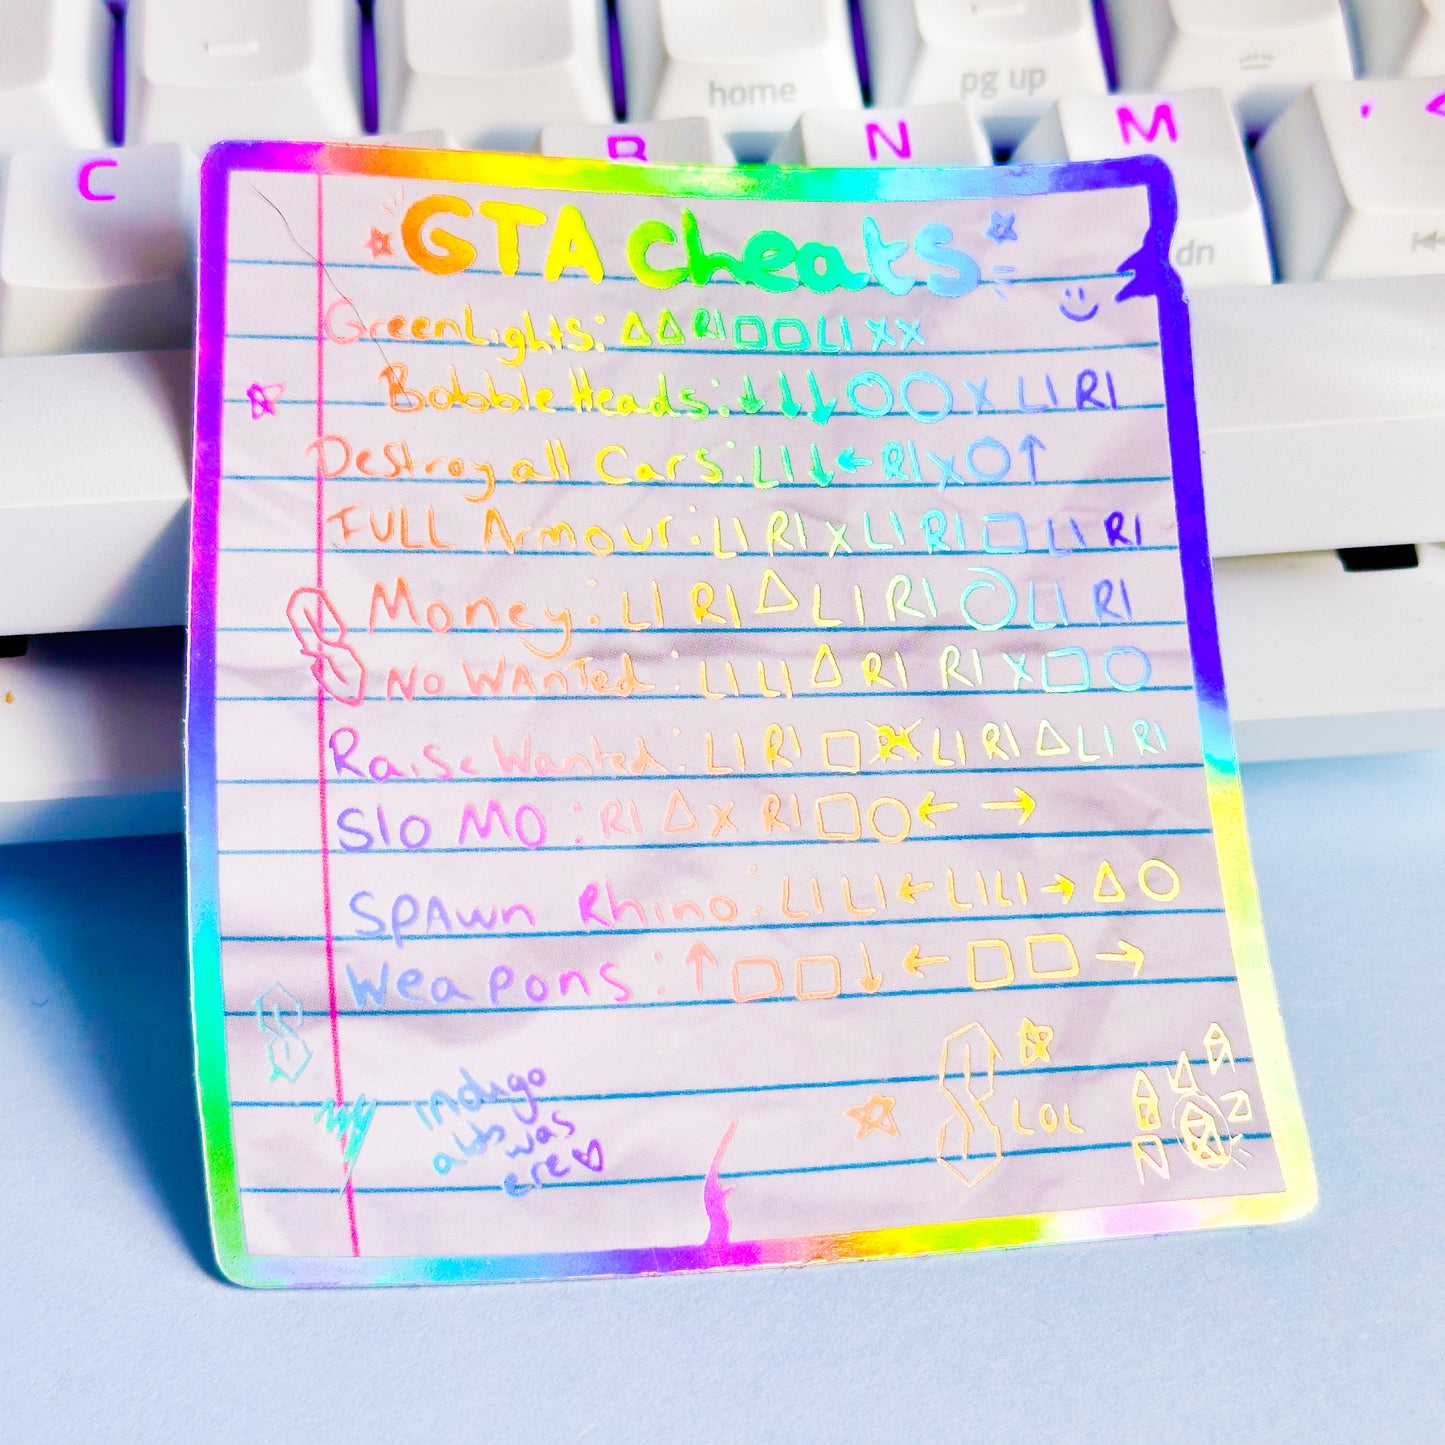 home
pg up
C
B
N
M
, <
dn
GTA cheats
GreenLights: △△R1□□L1 XX
Bobble Heads: ↓↓↓○○X L1 R1
Destroy all Cars: L1↓←R1X○↑
FULL Armour: L1 R1 X L1 R1 □ L1 R1
Money: L1 R1 △ L1 R1 ○ L1 R1
No WAnTed: L1 L1 △ R1 R1 X □ ○
Raise Wanted: L1 R1 □ L1 R1 △ L1 R1
Slo MO: R1 △ X R1 □ ○ ← →
SPAwn Rhino: L1 L1 ← L1 L1 → △ ○
Weapons: ↑ □ □ ↓ ← □ □ →
LOL
was
ere ♡